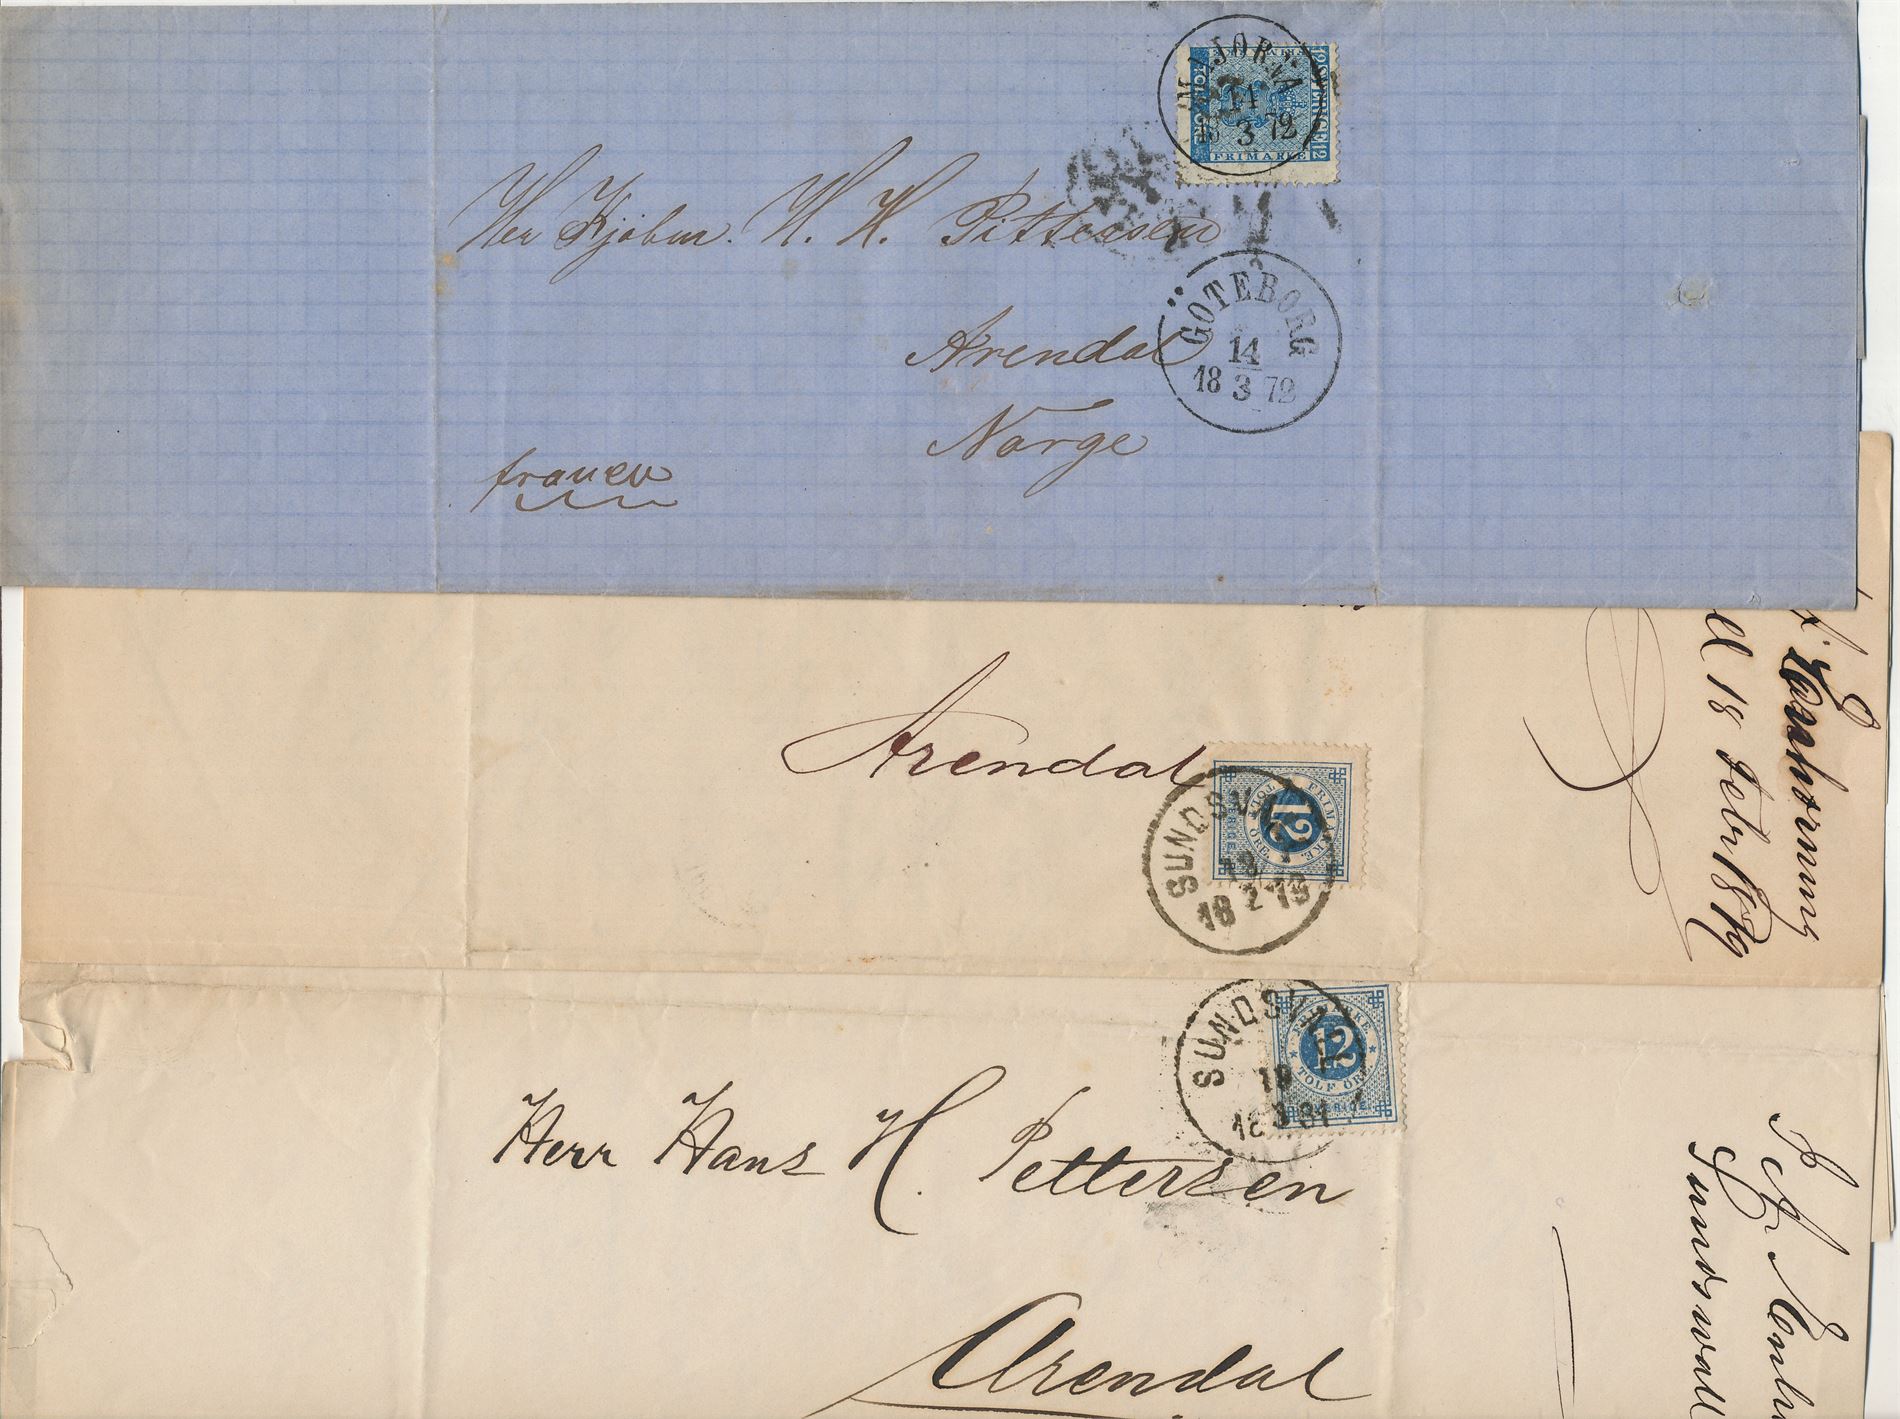 MAJORNA
14
18 3 72
SVERIGE 12
FRIMÄRKE
Herr Kjøbm. H. H. Pettersen
GÖTEBORG
14
18 3 72
Arendal
Norge
franco
Arendal
SUNDSVALL
18
18 2 79
12
FRIMÄRKE
TOLF ÖRE
SVERIGE
18 Febr 1879
SUNDSVALL
19
18 3 81
FRIMÄRKE
12
TOLF ÖRE
SVERIGE
Herr Hans H. Pettersen
Arendal
Sundsvall